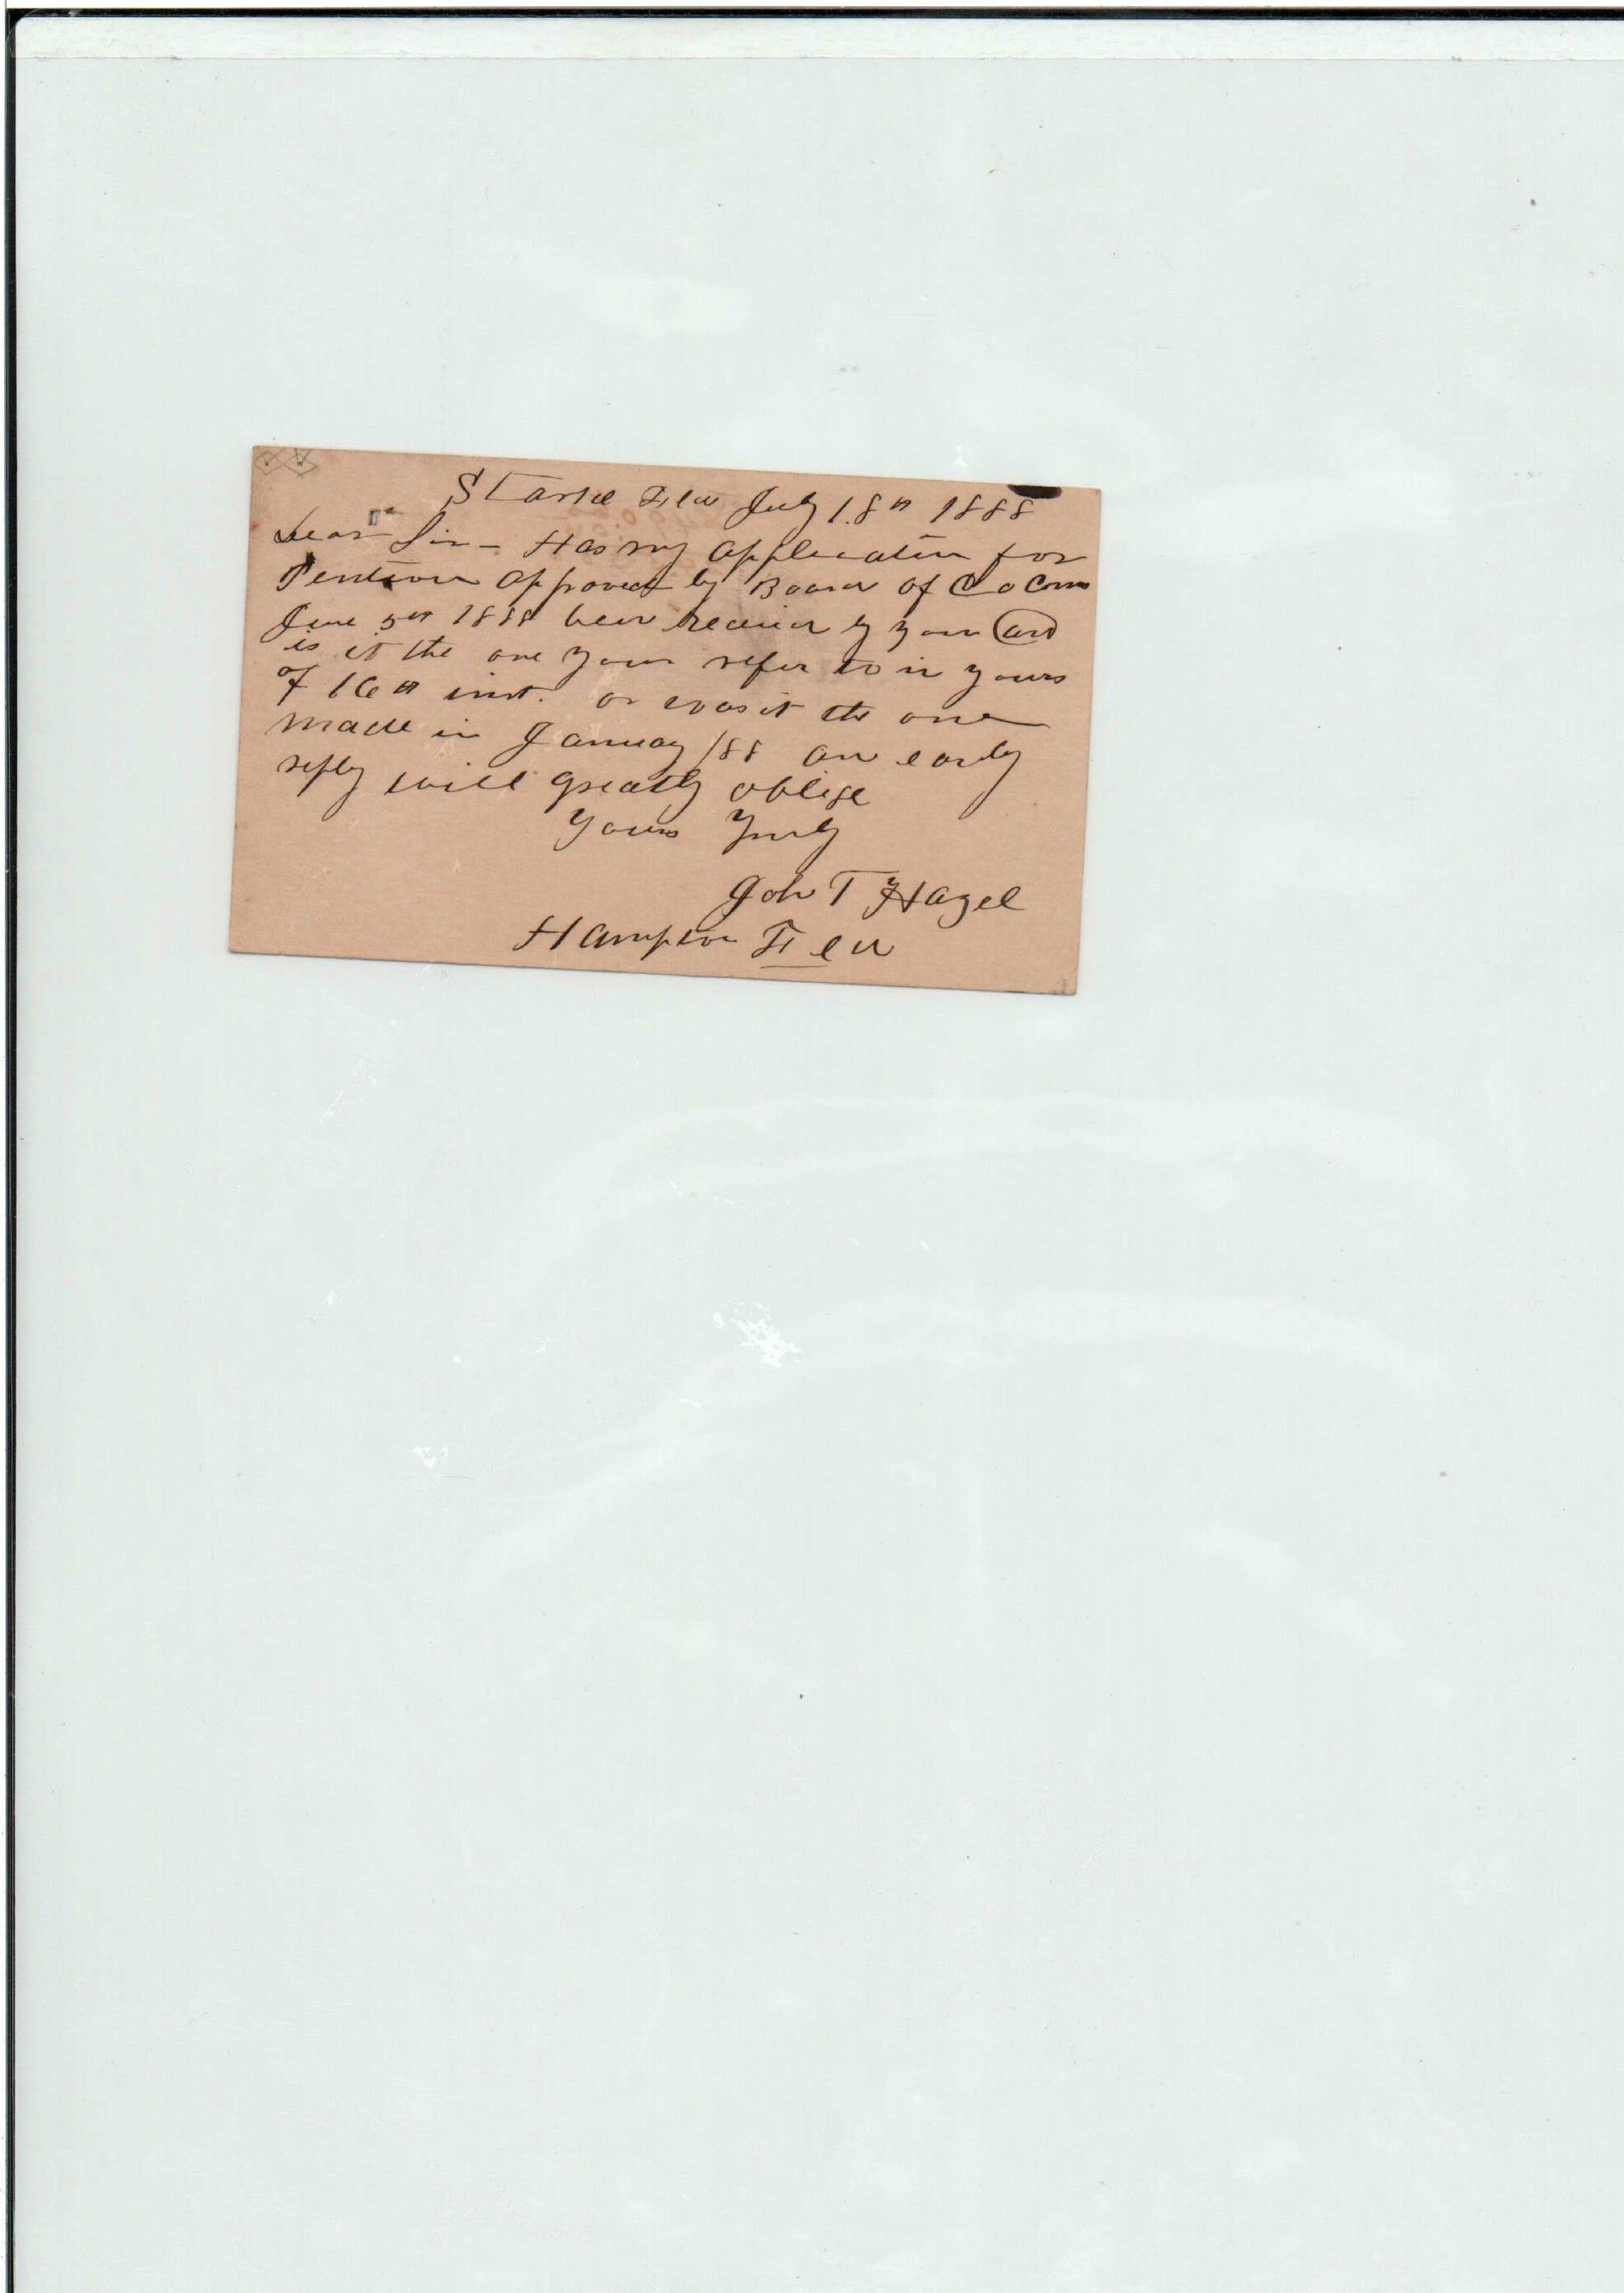 Starke Fla July 18th 1888
Dear Sir - Has my application for
Pention approved by Board of Co Coms
June 5th 1888 been received by you and
is it the one you refer to in yours
of 16th inst. or was it the one
made in January /88 an early
reply will greatly oblige
Yours Truly
Joh T Hazel
Hampton Fla